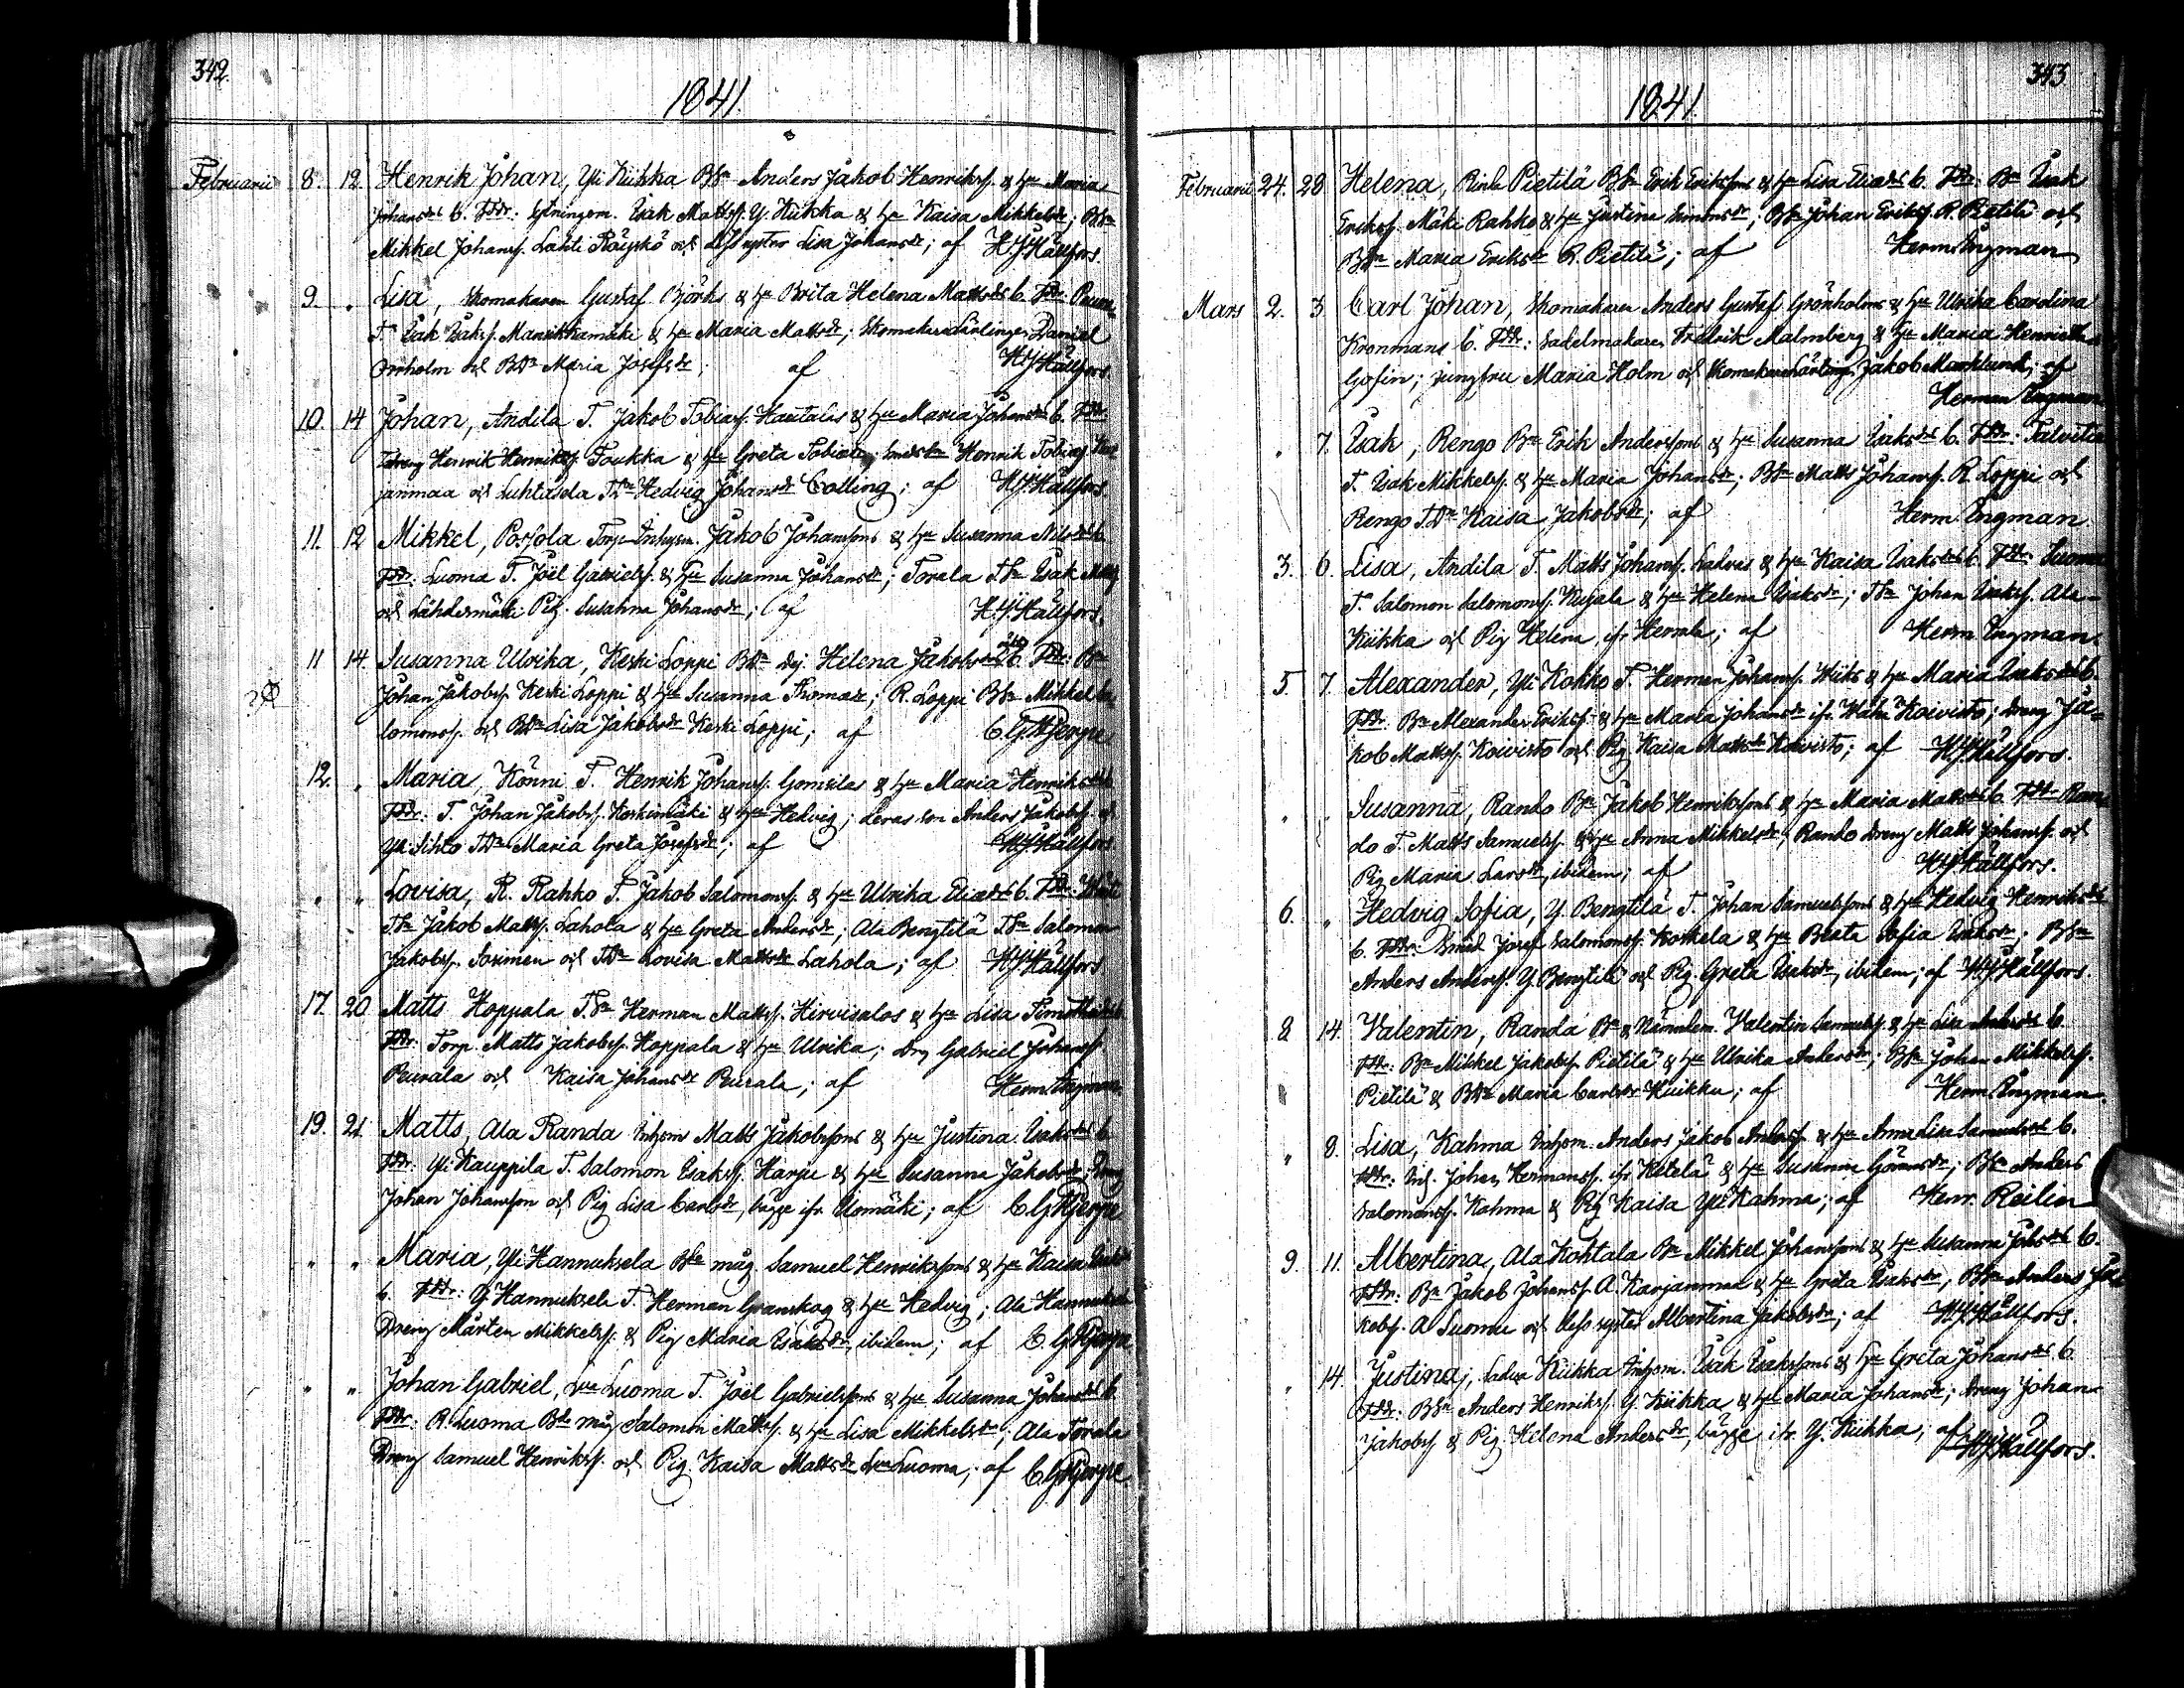 342.
1841.
Februarii 8. 12. Henrik Johan, Yli Kiikka BSn Anders Jakob Henrikss. & hu Maria
Johansdrs b. Fddr: Matts. Y. Kiikka & hu Kaisa Mikkelsdr; BSn
Mikkel Johanss. Lahti Röyskö och dess syster Lisa Johansdr; af H.J. Hällfors.
9. " Lisa, Skomakaren Gustaf Björks & hu Brita Helena Mattsdrs b. Fddr:
T. Isak Isakss. & hu Maria Mattsdr; Skomakare Lärlingen Daniel
Örnholm och BDr Maria Josefsdr; af H.J. Hällfors
10. 14 Johan, Andila T. Jakob Tobiass. Hautalas & hu Maria Johansdrs b. Fddr
Dreng Henrik Henrikss. Toukka & hu Greta Tobiasdr; Henrik Tobiass. Kar
janmaa och Luhtasela TDr Hedvig Johansdr Colling; af H.J. Hällfors
11. 12 Mikkel, Torp Inhysn. Jakob Johanssons & hu Susanna Nilsdrs b.
Fddr: Luoma T. Joël Gabrielss. & hu Susanna Johansdr; Torala TSn Isak Matts
och Lähdesmäki Pig. Susanna Johansdr; af H.J. Hällfors.
11 14. Susanna Ulrika, Keski Loppi BDr Helena Jakobsdrs b. Fddr: Bn
Johan Jakobss. Keski Loppi & hu Susanna Thomasdr; R. Loppi BSn Mikkel Sa
lomonss. och BDr Lisa Jakobsdr Keski Loppi; af C.G. Hjerpe
12. " Maria, Könni T. Henrik Johanss. Gomsilas & hu Maria Henriksdrs b.
Fddr: T. Johan Jakobss. Koskimäki & hu Hedvig; deras son Anders Jakobss. och
Yli Sihto TDr Maria Greta Josefsdr; af H.J. Hällfors
" " Lovisa, R. Rahko T. Jakob Salomonss. & hu Ulrika Eliasdrs b. Fddr:
TSn Jakob Mattss. Lahola & hu Greta Andersdr; Ala Bengtilä TSn Salomon
Jakobss. Sorinen och TDr Lovisa Mattsdr Lahola; af H.J. Hällfors
17. 20 Matts Hoppala TSn Herman Mattss. Hirvisalos & hu Lisa
Fddr: Torp. Matts Jakobss. Hoppala & hu Ulrika; Drg Gabriel Johanss
Peurala och Kaisa Johansdr Peurala; af Herm. Engman
19. 21. Matts, Ala Randa Inhysn Matts Jakobssons & hu Justina Isaksdrs b
Fddr: Yli Kauppila T. Salomon Isakss. Harju & hu Susanna Jakobsdr; Dreng
Johan Johansson och Pig Lisa Carlsdr, bägge ifr Uomäki; af C.G. Hjerpe
" " Maria, Yli Hannuksela BSn måg Samuel Henrikssons & hu Kaisa
b. Fddr: Y. Hannuksela T. Herman Granskog & hu Hedvig; Ala Hannuksela
Dreng Mårten Mikkelss. & Pig Maria Isaksdr, ibidem; af C.G. Hjerpe
" " Johan Gabriel, Luoma T. Joël Gabrielssons & hu Susanna Johansdrs b
Fddr: R. Luoma Bs måg Salomon Mattss. & hu Lisa Mikkelsdr; Ala Torala
Dreng Samuel Henrikss. och Pig. Kaisa Mattsdr Luoma; af C.G. Hjerpe.
343
1841.
Februarii 24. 28 Helena, Rinta Pietilä BSn Erik Erikssons & hu Lisa Eliasdrs b. Fddr: Bn Isak
Erikss. Mäki Rahko & hu Justina Simonsdr; BSn Johan Erikss. R. Pietilä och
BDr Maria Eriksdr R. Pietilä; af Herm. Engman
Mars 2. 3 Carl Johan, Skomakaren Anders Gustaf Grönholms & hu Ulrika Carolina
Kronmans b. Fddr: Sadelmakaren Fredrik Malmberg & hu Maria Henrietta
Gosin; jungfru Maria Holm och Skomakare Lärling Jakob Marklund; af
Herman Engman
" 7. Isak, Rengo Bn Erik Anderssons & hu Susanna Isaksdrs b. Fddr: Talvitie
T. Isak Mikkelss. & hu Maria Johansdr; BSn Matts Johanss. R. Loppi och
Rengo TDr Kaisa Jakobsdr; af Herm. Engman
3. 6. Lisa, Andila T. Matts Johanss. Ladvas & hu Kaisa Isaksdrs b. Fddr: Luoma
T. Salomon Salomonss. Kujala & hu Helena Isaksdr; TSn Johan Isakss. Ala-
Kiikka och Pig Helena, ifr; af Herm. Engman
5. 7. Alexander, Yli Kokko T. Herman Johanss. Wiiks & hu Maria Isaksdrs b.
Fddr: Bn Alexander Erikss. & hu Maria Johansdr ifr Koivisto; dreng Ja-
kob Mattss. Koivisto och Pig Kaisa Mattsdr Koivisto; af H.J. Hällfors.
" " Susanna, Rando Bn Jakob Henrikssons & hu Maria Mattsdrs b. Fddr Ran
do T. Matts Samuelss. & hu Anna Mikkelsdr; Rando dreng Matts Johanss. och
Pig Maria Larsdr, ibidem; af H.J. Hällfors.
6. " Hedvig Sofia, Y. Bengtilä T. Johan Samuelssons & hu Hedvig Henriksdrs
b. Fddr: Smed Josef Salomonss. Koskela & hu Beata Sofia Isaksdr; BSn
Anders Anderss. Y. Bengtilä och Pig. Greta Isaksdr, ibidem; af H.J. Hällfors.
8 14. Valentin, Randa Bn & Nämndem. Valentin Samuelss. & hu Lisa Andersdrs b.
Fddr: Bn Mikkel Jakobss. Pietilä & hu Ulrika Andersdr; BSn Johan Mikkelss.
Pietilä & BDr Maria Carlsdr Kuikka; af Herm. Engman
" 8. Lisa, Kahma Inhysn. Anders Jakob Anderss. & hu Anna Lisa Samuelsdrs b.
Fddr: Inh. Johan Hermanss. ifr Ketelä & hu Susanna Göransdr; BSn Anders
Salomonss. Kahma & Pig Kaisa Yli Kahma; af Henr. Reilin
9. 11. Albertina, Ala Kohtala Bn Mikkel Johanssons & hu Susanna Johsdrs b.
Fddr: Bn Jakob Johanss. A. Karjanmaa & hu Greta Isaksdr; BSn Anders Ja
kobss. A Luoma och dess syster Albertina Jakobsdr; af H.J. Hällfors.
" 14. Justina, Ladva Kiikka Inhysn. Isak Isakssons & hu Greta Johansdrs b.
Fddr: BSn Anders Henrikss. Y. Kiikka & hu Maria Johansdr; dreng Johan
Jakobss & Pig Helena Andersdr, bägge ifr Y. Kiikka; af H.J. Hällfors.